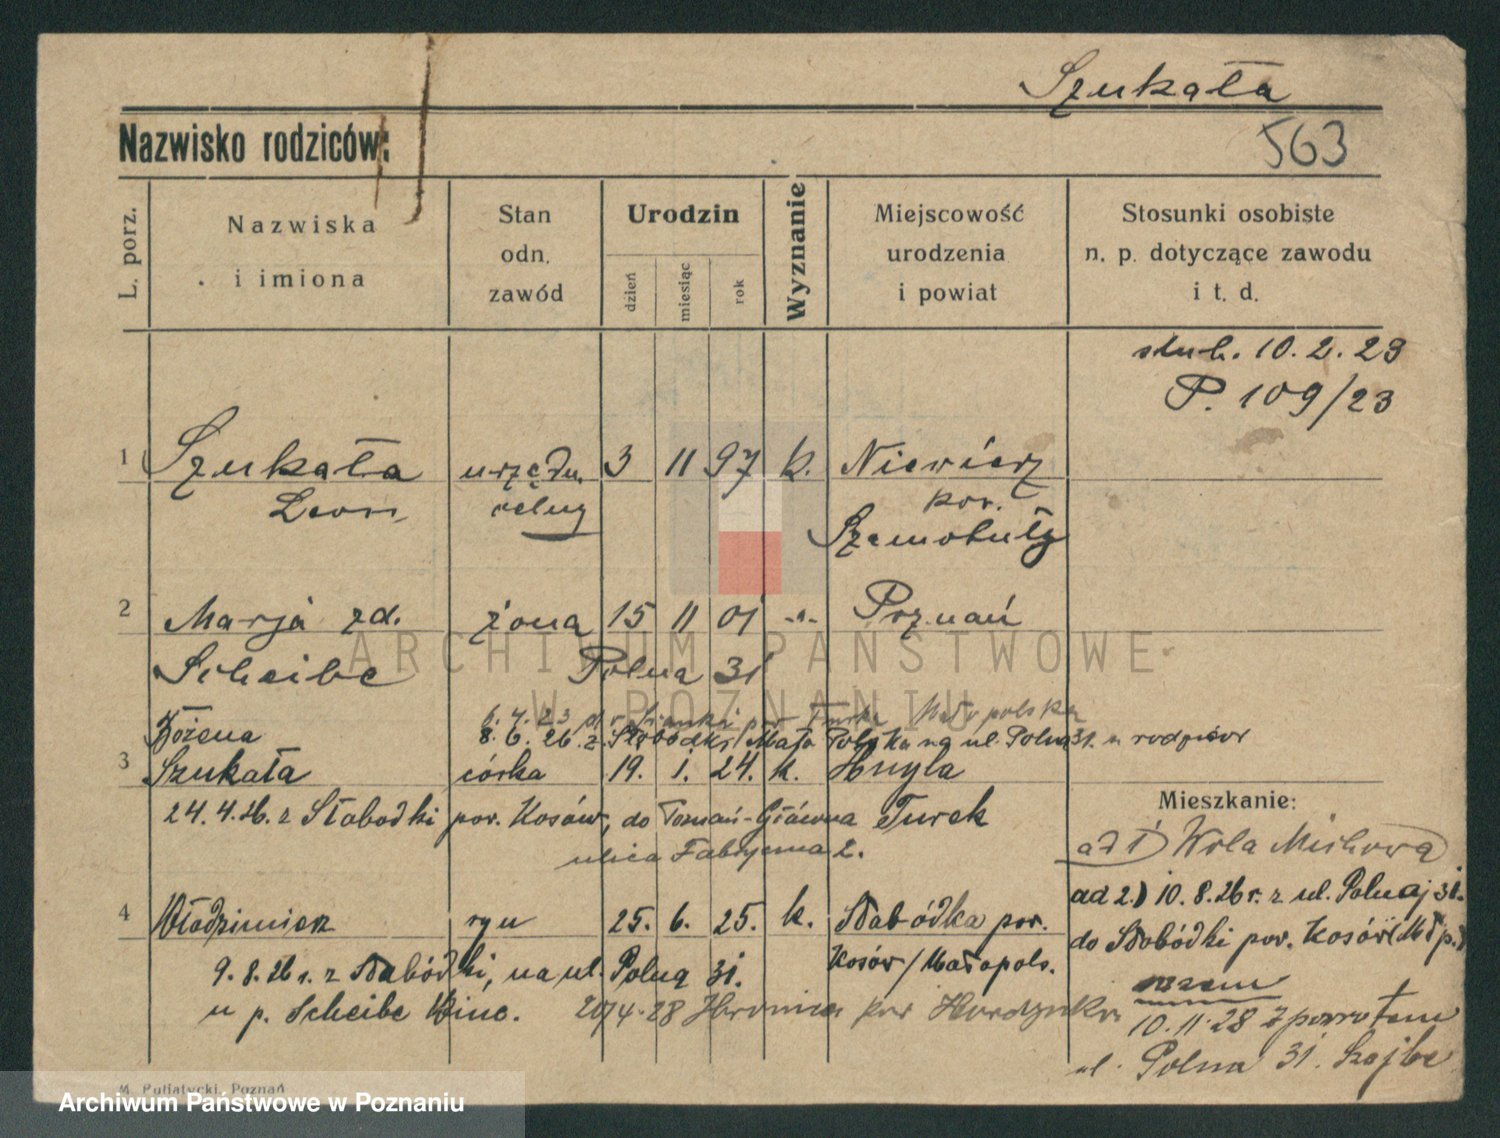 Szukała
Nazwisko rodziców:
563
L. porz.
Nazwiska
i imiona
Stan
odn.
zawód
Urodzin
dzień
miesiąc
rok
Wyznanie
Miejscowość
urodzenia
i powiat
Stosunki osobiste
n. p. dotyczące zawodu
i t. d.
10.2.23
P. 109/23
1 Szukała 3 11 97 k. Niewierz
Leon celny pow.
Szamotuły
2 Marja zd. żona 15 11 01 -"- Poznań
Scheibe Polna 31
ARCHIWUM PAŃSTWOWE
W POZNANIU
6. 7. 23 Turka Małopolska
Bożena 8. 6. 26. z Słobódki/Mało Polska na ul. Polna 31. u
3 Szukała córka 19. 1. 24. k. Hnyla
24. 4. 26. z Słabodki pow. Kosów, do Poznań-Główna Turek
ulica Fabryczna 2.
Mieszkanie:
ad 1) Wola Michowa
ad 2.) 10. 8. 26 r. z ul. Polnej 31.
4 Włodzimierz syn 25. 6. 25. k. Słabódka pow.
Kosów/Małopols.
do Słobódki pow. Kosów (Młp.)
9. 8. 26 r. z Słabódki, na ul. Polna 31.
u p. Scheibe Winc. 20/4-28 Hronica pow
10. 11. 28 z powrotem
ul. Polna 31.
M. Putiatycki, Poznań
Archiwum Państwowe w Poznaniu